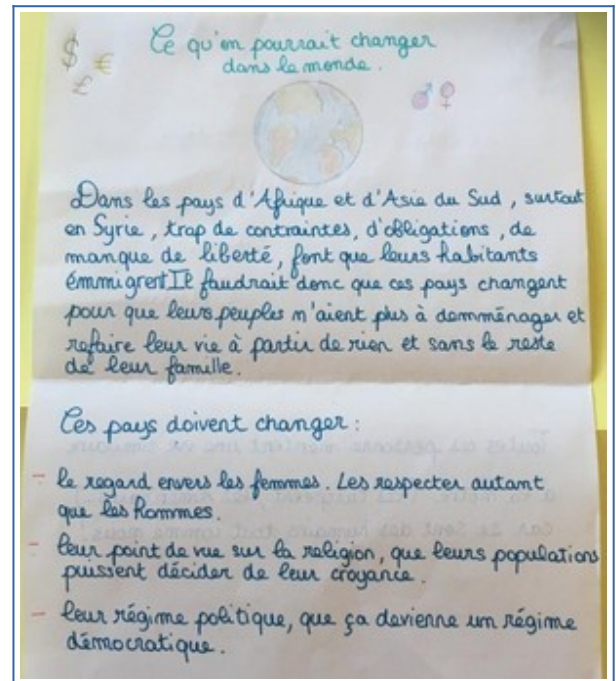 $ € £
Ce qu'on pourrait changer
dans le monde.
♂ ♀
Dans les pays d'Afrique et d'Asie du Sud, surtout
en Syrie, trop de contraintes, d'obligations, de
manque de liberté, font que leurs habitants
émmigrent Il faudrait donc que ces pays changent
pour que leurs peuples n'aient plus à demménager et
refaire leur vie à partir de rien et sans le reste
de leur famille.
Ces pays doivent changer :
- le regard envers les femmes. Les respecter autant
que les Hommes.
- leur point de vue sur la religion, que leurs populations
puissent décider de leur croyance.
- leur régime politique, que ça devienne un régime
démocratique.